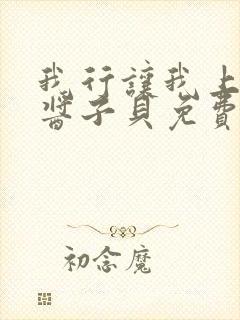 我行讓我上
醬子貝免費
初念魔